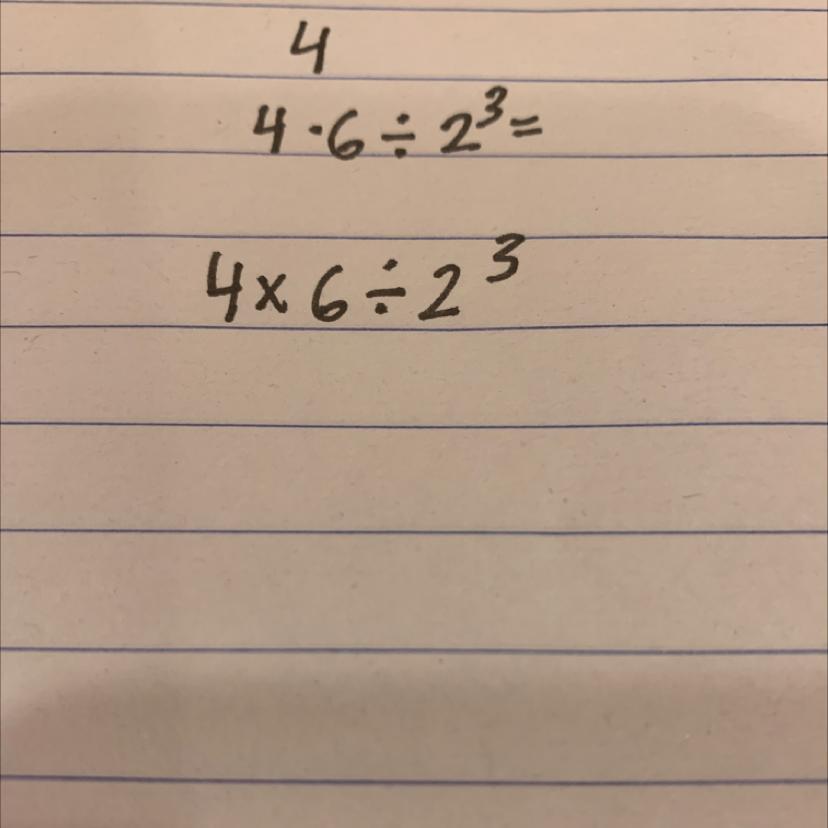 4
4·6÷2³=
4×6÷2³